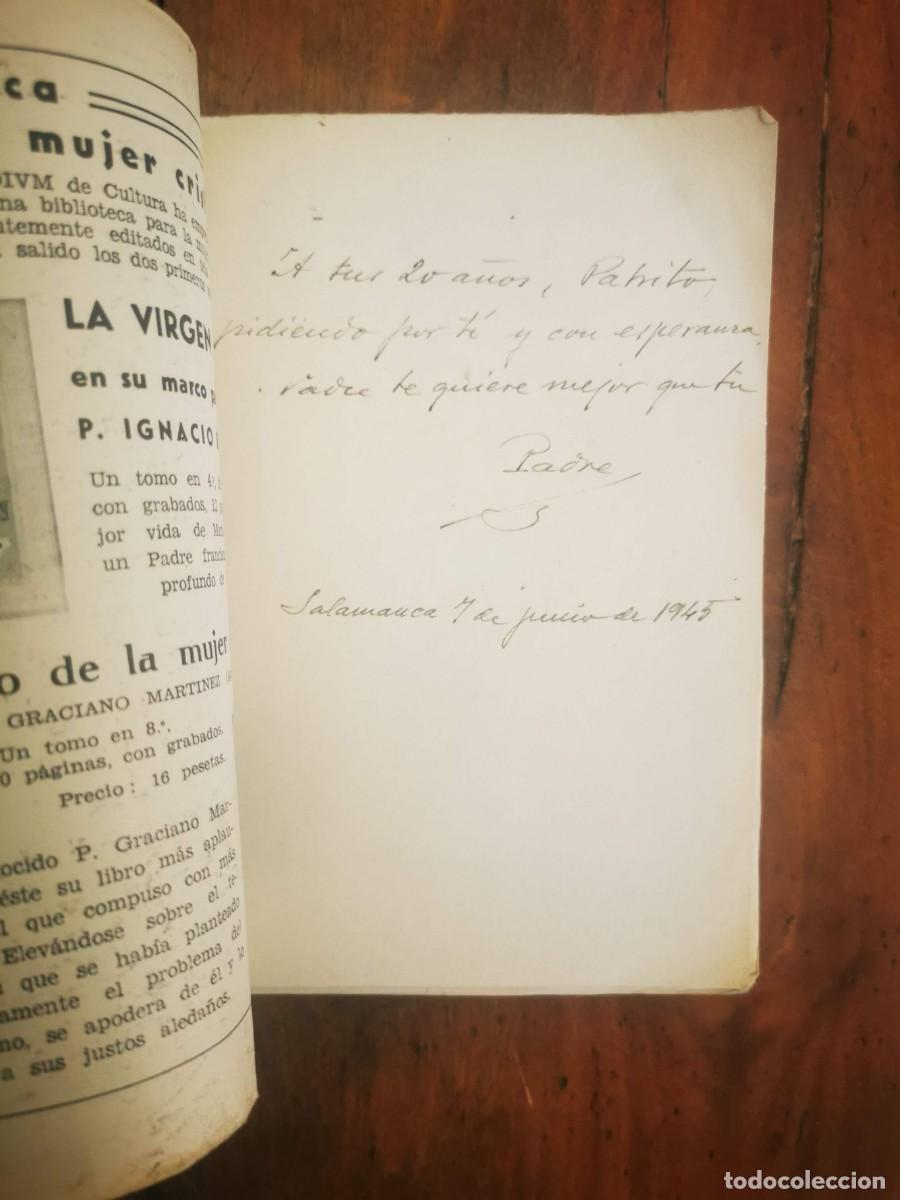 ca
mujer cris
DIVM de Cultura ha emp
na biblioteca para la mu
ntemente editados en
salido los dos primeros
LA VIRGEN
en su marco p
P. IGNACIO
Un tomo en 4º,
con grabados, 12
jor vida de Mar
un Padre francis
profundo de
o de la mujer
GRACIANO MARTINEZ
Un tomo en 8.º,
0 páginas, con grabados.
Precio: 16 pesetas.
ocido P. Graciano Mar-
éste su libro más aplau-
l que compuso con más
Elevándose sobre el te-
a que se había planteado
amente el problema del
no, se apodera de él y lo
a sus justos aledaños.
A tus 20 años, Patrito,
pidiendo por tí y con esperanza.
Nadie te quiere mejor que tu
Padre
Salamanca 7 de junio de 1945
todocoleccion